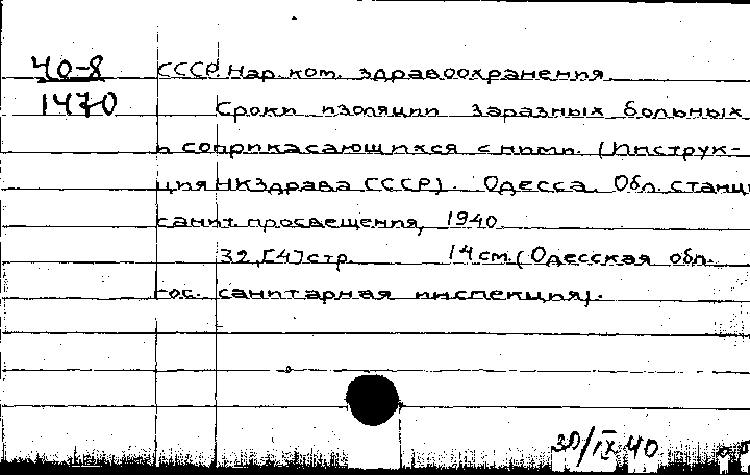 40-8
1470
СССР. Нар. ком. здравоохранения
Сроки изоляции заразных больных
и соприкасающихся с ними. (Инструк-
ция НКЗдрава СССР). Одесса, Обл. станц
санит. просвещения, 1940
32, [4] стр. 14 см. (Одесская обл.
гос. санитарная инспекция).
30/IX 40